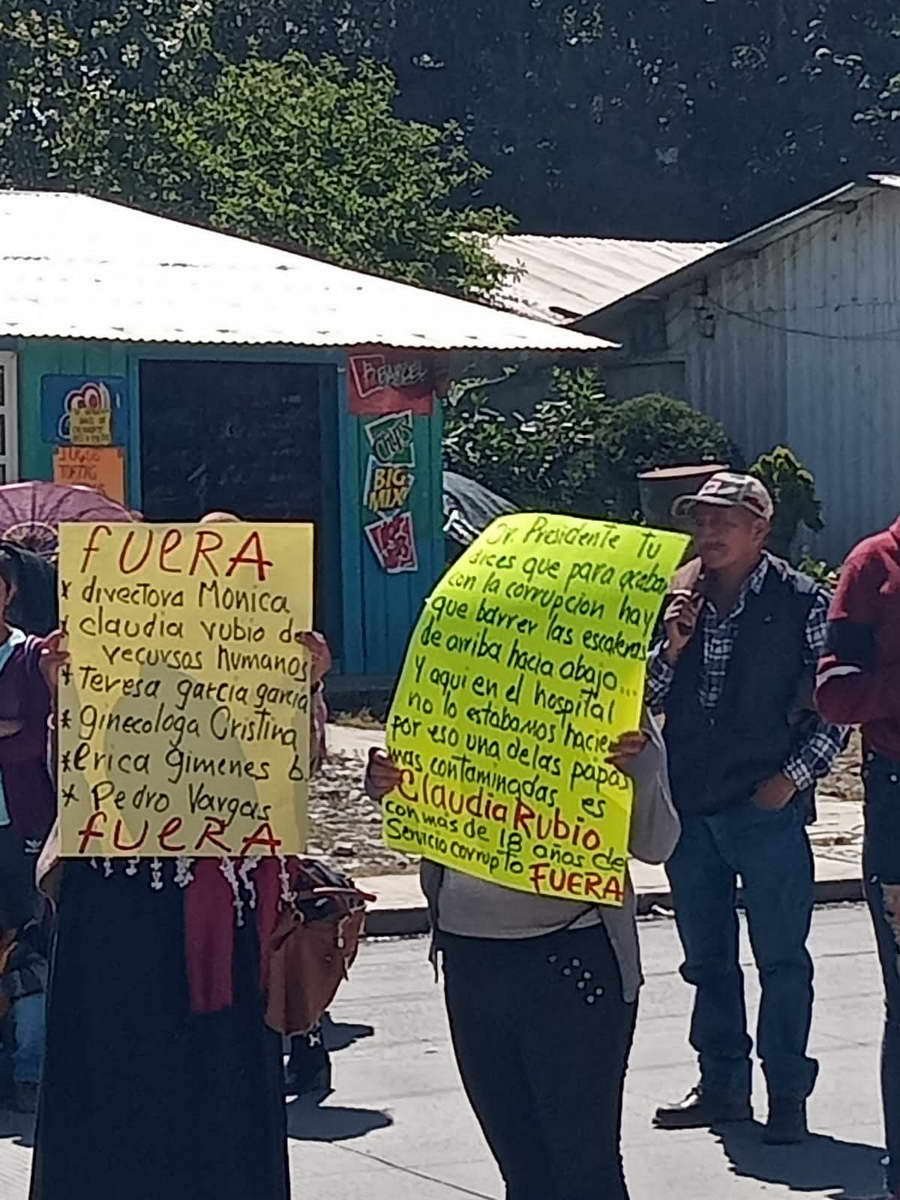 fUERA
* directora Monica
* claudia rubio de
recursos humanos
* Teresa garcia garcia
* ginecologa Cristina
* erica gimenes b.
* Pedro Vargas
fUERA
Sr. Presidente Tu
dices que para acabar
con la corrupcion hay
que barrer las escaleras
de arriba hacia abajo...
y aqui en el hospital
no lo estabamos hacie
por eso una de las papas
mas contaminadas es
Claudia Rubio
con más de 18 años de
Servicio corrupto FUERA
BIG
MIX